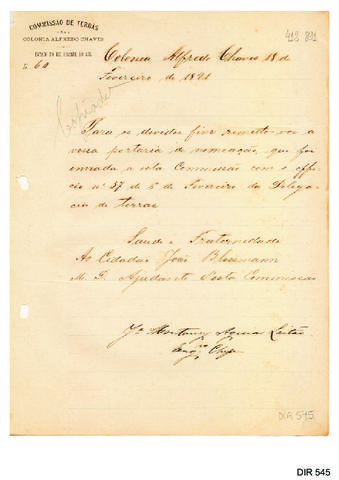 COMMISSÃO DE TERRAS
DA
COLONIA ALFREDO CHAVES
ESTADO DO RIO GRANDE DO SUL
N. 60
419 891
Colonia Alfredo Chaves 18 de
Fevereiro de 1891
Copiado
Para os devidos fins remetto-vos a
vossa portaria de nomeação, que foi
enviada a esta Commissão com o offi-
cio nº 37 de 6 de Fevereiro da Delega-
cia de terras
Saude e Fraternidade
Ao Cidadão João
M. D. Ajudante desta Commissão
Leitão
Engº Chefe
DIR 545
DIR 545